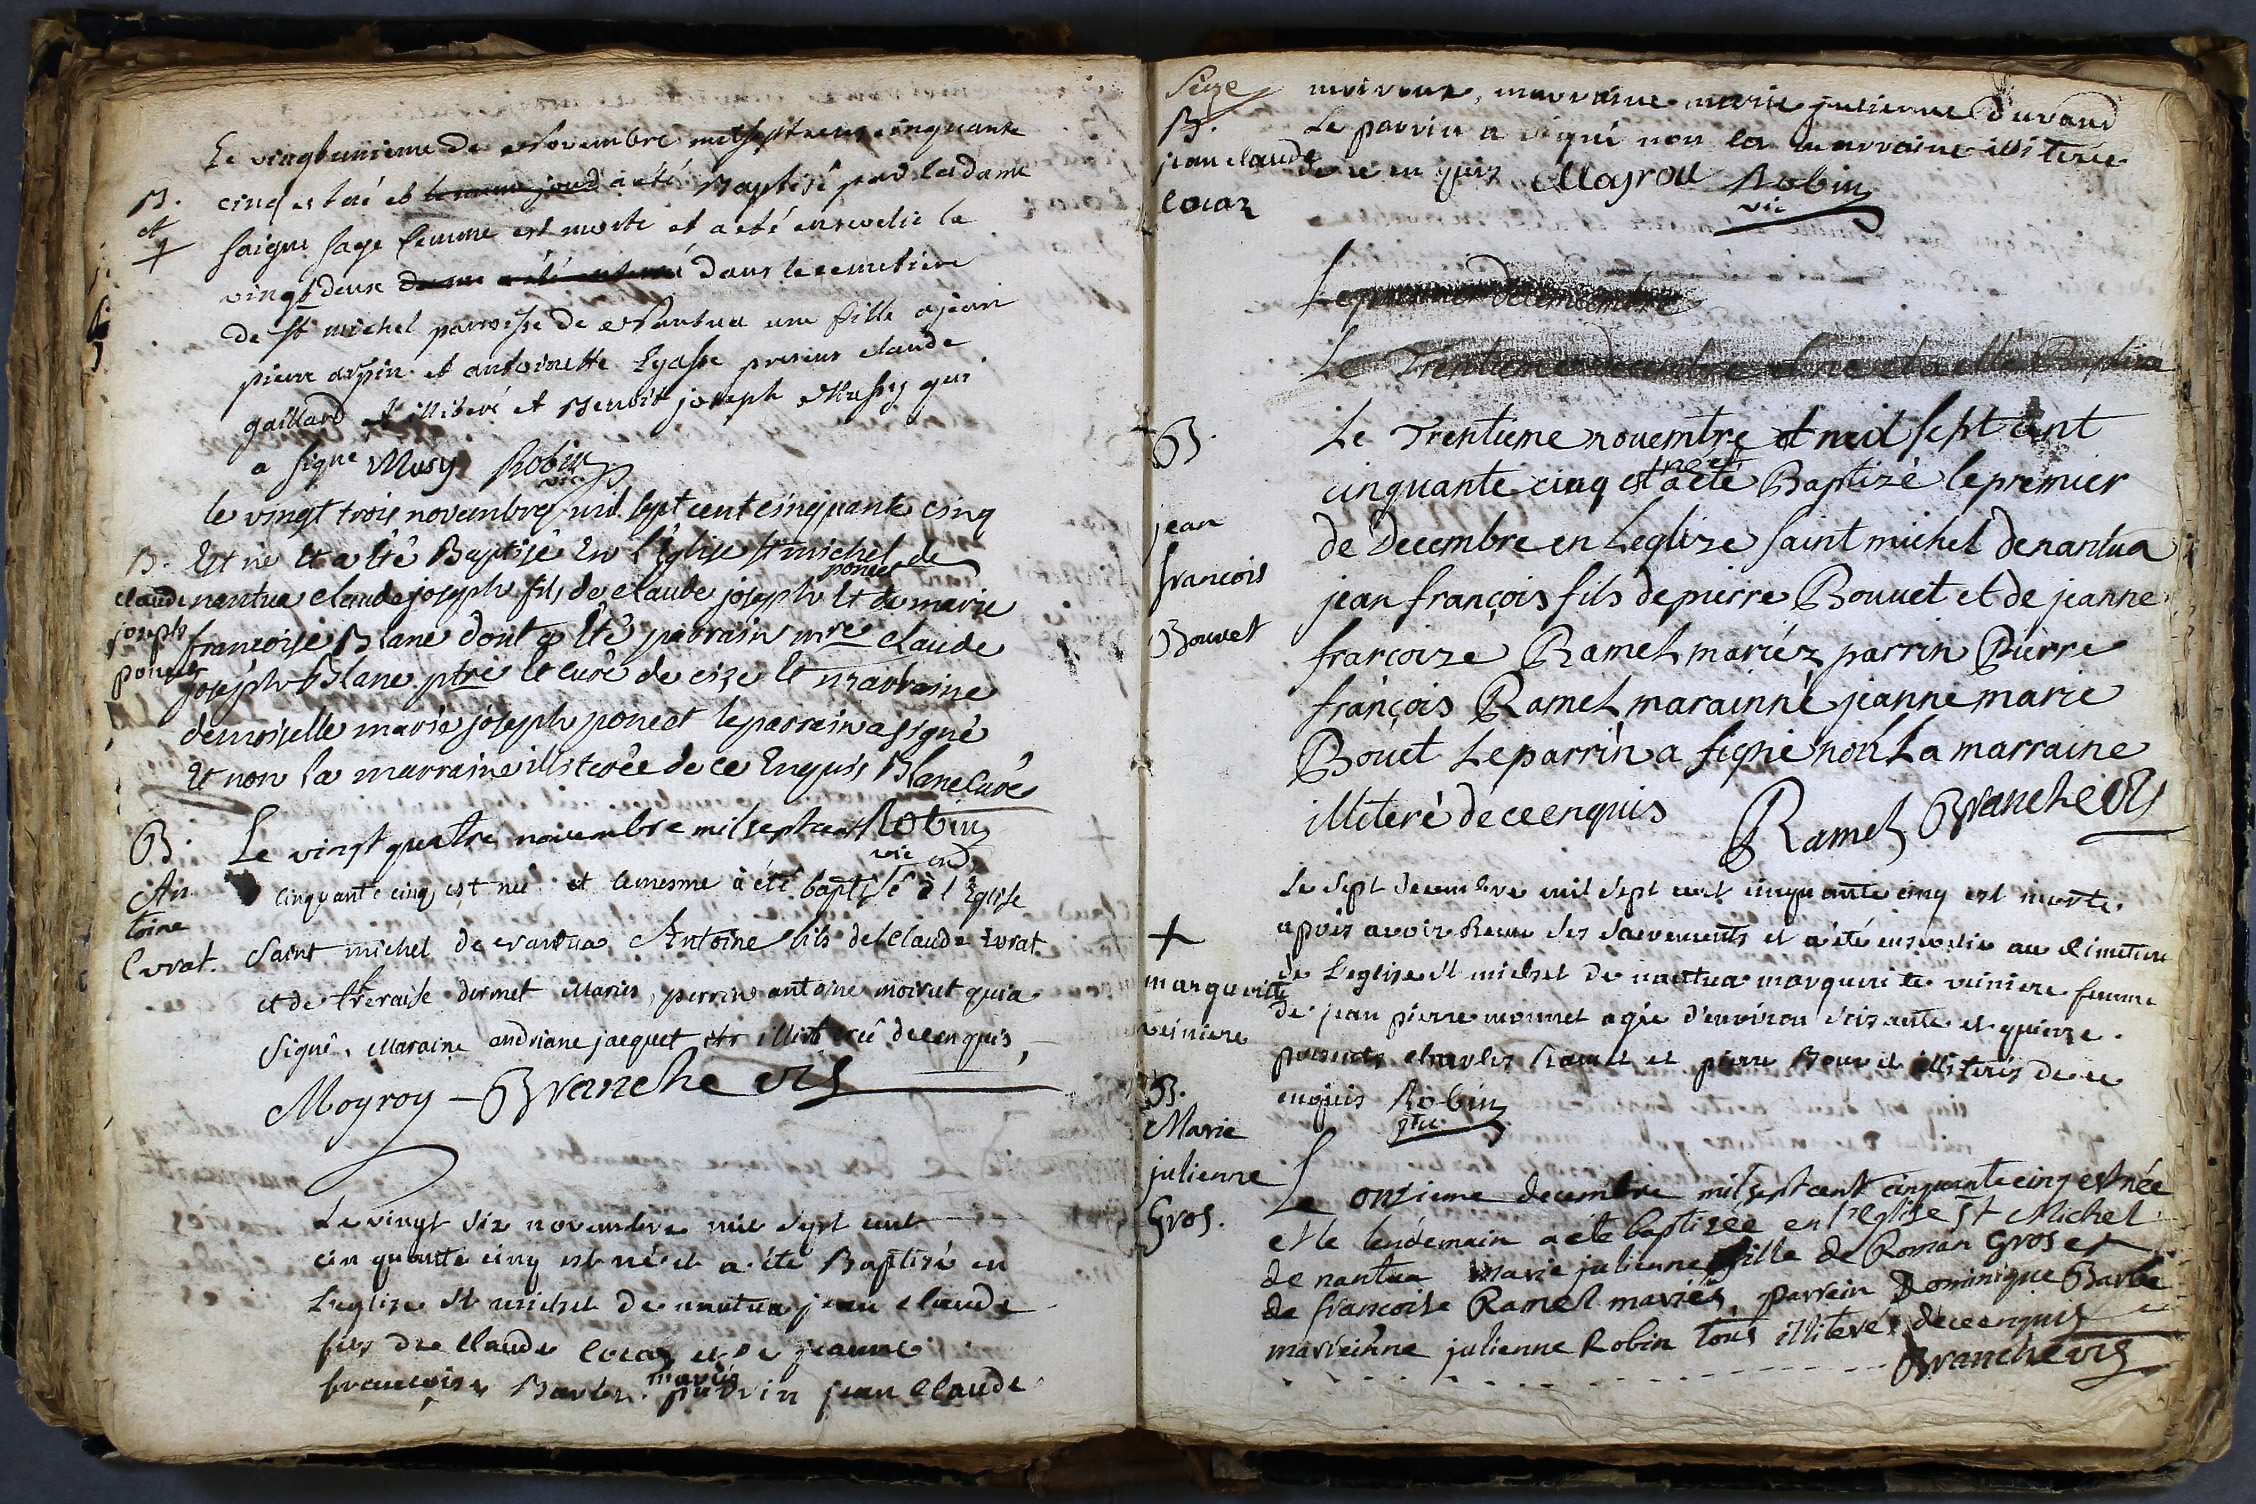 Le vingtunieme de Novembre mil sept cens cinquante
B.
et
+
cinq est né et le meme jour a été Baptisé par la dame
saigne sage femme est morte et a eté ensevelie le
vingt deux dans le cemetiere
de st michel parroisse de Nantua une fille a jean
pierre arpin et antoinette Egasse presens claude
gaillard illiteré et Benoit joseph Musy qui
a signé Musy Robin
vic.
le vingt trois novembre mil sept cent cinquante cinq
B. Est né Et a Eté Baptisé En l'Eglise st michel de
claude joseph poncet
nantua claude joseph fils de claude joseph poncet Et de marie
francoise Blanc dont a Eté parrain mre claude
joseph Blanc ptre Et curé de cize Et marraine
demoiselle marie joseph poncet le parrain a signé
Et non la marraine illiterée de ce Enquis Blanc Curé
Robin
vic
B.
An
toine
Evrat.
Le vingt quatre novembre mil sept cent
cinquante cinq est né et le mesme à été baptisé en l'Eglise
Saint michel de nantua Antoine fils de Claude Evrat
et de thèraise dermet Mariés, perrin antoine moiret qui a
signé, Maraine andriane jacquet illiterée de ce enquis,
Moyroy - Branche vis
Le vingt six novembre mil sept cent
cinquante cinq est né et a été Baptisé en
L'eglise st michel de nantua jean claude
fils de Claude Cocaz et de jeanne
francoise Barbe mariés parrin jean Claude
Seize
moiroux, marraine marie julienne Durand
B.
jean claude
Cocaz
Le parrin a signé non la marraine illiterée
de ce enquis Moyrou Robin
vic
Le premier decembre
Le Trentieme decembre
B.
jean
francois
Bouvet
Le Trentieme novembre mil sept cent
cinquante cinq est né et a eté Baptizé le premier
de Decembre en Leglize saint michel de nantua
jean françois fils de pierre Bouuet et de jeanne
françoize Ramel mariéz parrin Pierre
françois Ramel marainne jeanne marie
Bouet Le parrin a signé non La marraine
illiteré de ce enquis Ramel Branche vis
+
marguerite
veiniere
Le sept decembre mil sept cent cinquante cinq est morte
apres avoir Receu ses sacrements et a été ensevelie au Cimetiere
de L'eglise st michel de nantua marguerite veiniere femme
de jean pierre monnet agée d'environ soixante et quinze
presents charles Ramel et pierre Bouvet illiterés de ce
enquis Robin
ptre
B.
Marie
julienne
Gros.
Le onzieme decembre mil sept cent cinquante cinq est née
et le lendemain a eté baptisée en l'eglise St Michel
de nantua Marie julienne fille de Roman Gros et
de francoise Ramel mariés, parrein Dominique Barbe
marreinne julienne Robin tous illiterés de ce enquis
Branche vis